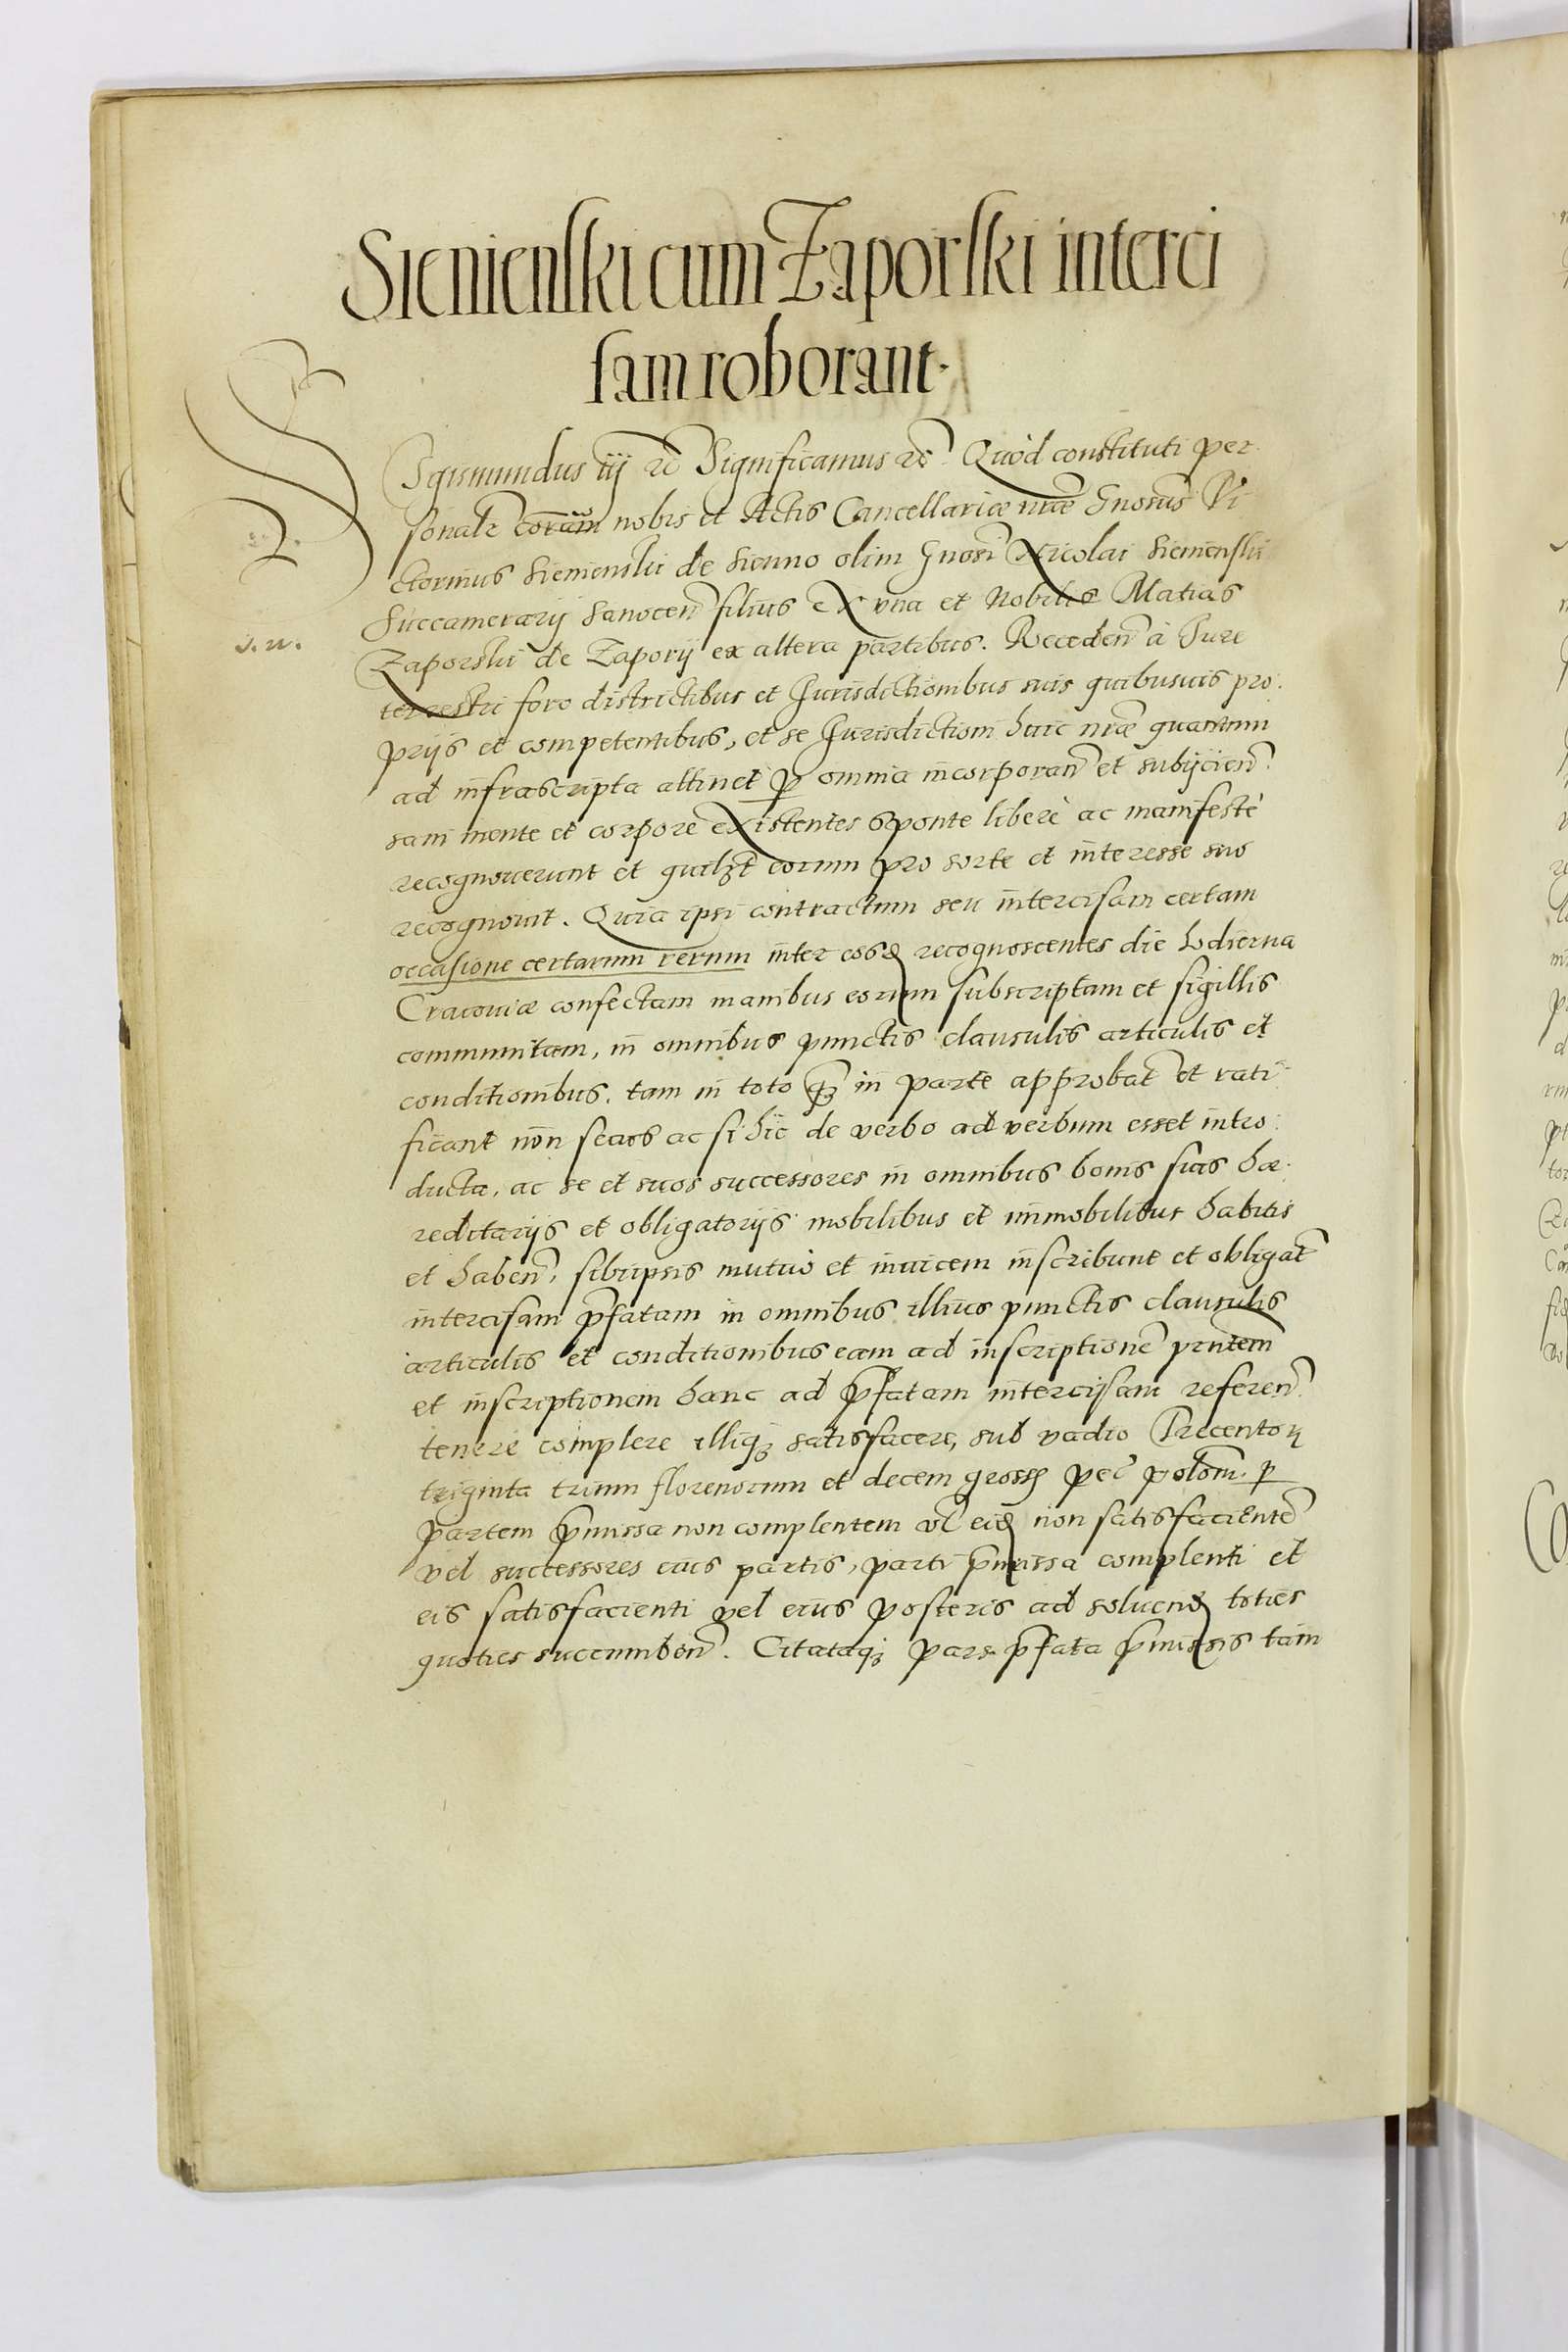 Sienienski cum Zaporski interci
sam roborant.
Sigismundus iij rc̃ Significamus rc̃. Quòd constituti per
sonalr̃ coram nobis et Actis Cancellariæ nr̃æ Gnosus Vi
ctorinus Sienienski de Sienno olim Gnosi Nicolai Sienienski
Succamerarij Sanocen̄ filius ex vna et Nobilis Matias
Zaporski de Zaporij ex altera partibus. Receden̄ à Jure
s. n.
terrestri foro districtibus et Jurisdictionibus suis quibusuis pro.
prijs et competentibus, et se Jurisdictioni huic nr̃æ quantum
ad infrascripta attinet ꝑ omnia incorporan̄ et subijcien̄.
sani mente et corpore existentes sponte liberè ac manifestè
recognouerunt et quilꝫt eorum pro sorte et interesse suo
recognouit. Quia ipsi contractum seu intercisam certam
occasione certarum rerum inter eosd recognoscentes die hodierna
Cracouiæ confectam manibus eorum subscriptam et sigillis
communitam, in omnibus punctis clausulis articulis et
conditionibus. tam in toto q̃ꝫ in parte approbāt et rati
ficant non secus ac si hic de verbo ad verbum esset intro:
ducta, ac se et suos successores in omnibus bonis suis hæ.
reditarijs et obligatorijs mobilibus et immobilibus habitis
et haben̄, sibiipsis mutuò et inuicem inscribunt et obligāt
intercisam p̃fatam in omnibus illius punctis clausulis
articulis et conditionibus eam ad inscriptionē pñtem
et inscriptionem hanc ad p̃fatam intercisam referen̄.
tenere complere illiqꝫ satisfacere, sub vadio Trecentoꝝ
triginta trium florenorum et decem gross pec̃ polom̃. ꝑ
partem p̃missa non complentem vl̃ eid non satisfacientē
vel successores eius partis, parti p̃missa complenti et
eis satisfacienti vel eius posteris ad soluend toties
quoties succumben̄. Citataqꝫ pars p̃fata p̃missis tam